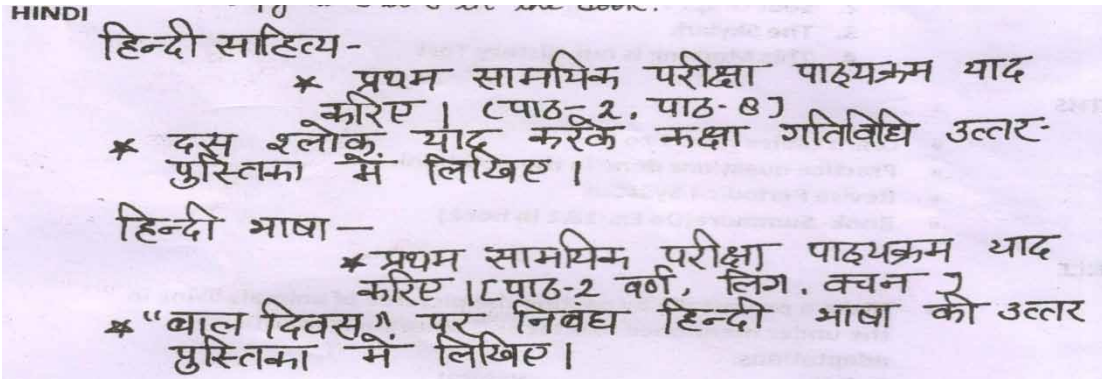 HINDI
हिन्दी साहित्य-
* प्रथम सामयिक परीक्षा पाठ्यक्रम याद
करिए । (पाठ-2, पाठ-8)
* दस श्लोक याद करके कक्षा गतिविधि उत्तर-
पुस्तिका में लिखिए ।
हिन्दी भाषा —
* प्रथम सामयिक परीक्षा पाठ्यक्रम याद
करिए । (पाठ-2 वर्ण, लिंग, वचन )
* "बाल दिवस" पर निबंध हिन्दी भाषा की उत्तर
पुस्तिका में लिखिए ।